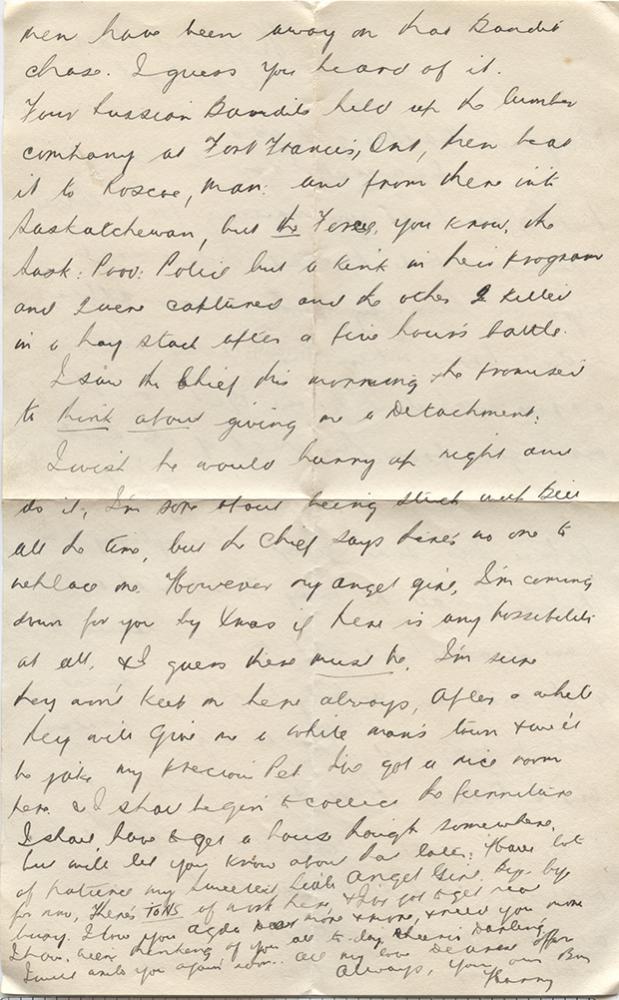 men have been away on that Bandit
chase. I guess you heard of it.
Four Russian Bandits held up the lumber
company at Fort Francis, Ont, then beat
it to Roscoe, Man: and from there into
Saskatchewan, but the Force, you know, the
Sask: Prov: Police put a kink in their program
and 2 were captured and the other 2 killed
in a hay stack after a five hours battle.
I saw the Chief this morning & he promised
to think about giving me a Detachment.
I wish he would hurry up right and
do it, I'm sore about being stuck with
all the time, but the Chief says there's no one to
replace me. However my angel girl, I'm coming
down for you by Xmas if there is any possibility
at all, & I guess there must be. I'm sure
they won't keep me here always, After a while
they will give me a white man's town & we'll
be jake my precious Pet. I've got a nice room
here & I shall begin to collect the furniture
I shall have to get a house though somewhere,
but will let you know about that later: Have lots
of patience my sweetest little angel Girl. Bye-bye
for now, There's TONS of work here, & I've got to get real
busy. I love you more & more, & need you more
I have been thinking of you all to-day, Cheerio Darling
I will write you again soon. All my love Dearest
Always, your own Boy
Harry